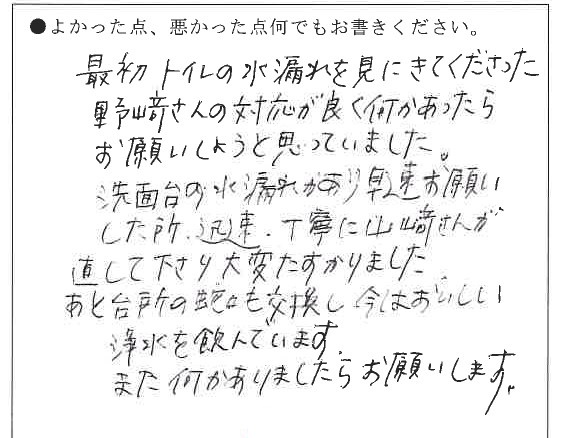 ●よかった点、悪かった点何でもお書きください。
最初トイレの水漏れを見にきてくださった
野崎さんの対応が良く何かあったら
お願いしようと思っていました。
洗面台の水漏れがあり早速お願い
した所、迅速、丁寧に山崎さんが
直して下さり大変たすかりました
あと台所の蛇口も交換し今はおいしい
浄水を飲んでいます。
また何かありましたらお願いします。